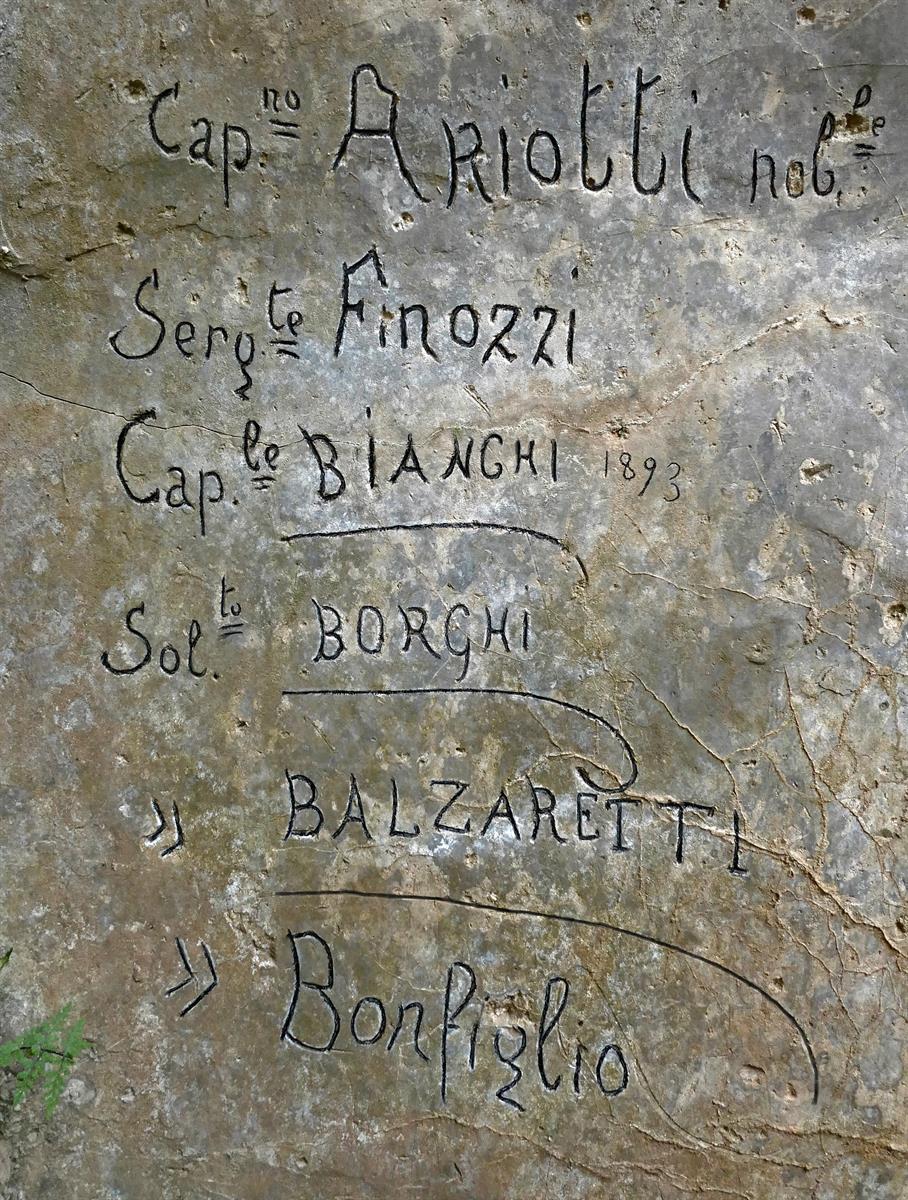 Cap.no Ariotti nob.le
Serg.te Finozzi
Cap.le BIANCHI 1893
Sol.to BORGHI
» BALZARETTI
» Bonfiglio